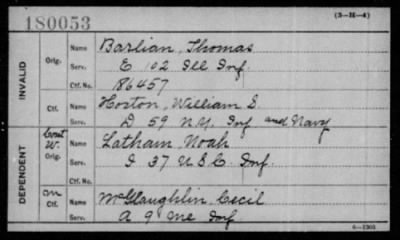 180053
(3-H-4)
INVALID
Orig.
Name Barlian, Thomas
Serv. E 102 Ill Inf.
Ctf. No. 186457
Ctf.
Name Horton, William S.
Serv. D 59 N.Y. Inf and Navy
DEPENDENT
Cont W. Orig.
Name Latham, Noah
Serv. I 37 U.S.C. Inf.
Ctf. No.
Ctf.
Name McGlaughlin, Cecil
Serv. A 9 Me Inf
6-1303